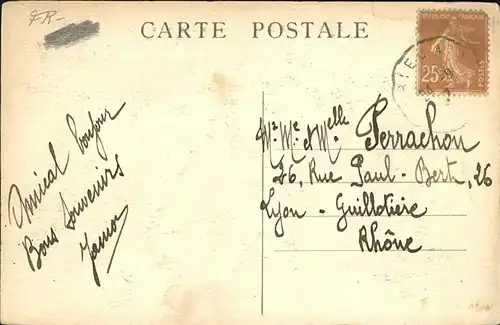 FR-
CARTE POSTALE
REPUBLIQUE FRANÇAISE
25c
POSTES
Amical bonjour
Bons Souvenirs
Mr. Me. et Melle Perrachon
26, Rue Paul-Bert, 26
Lyon-Guillotière
Rhône